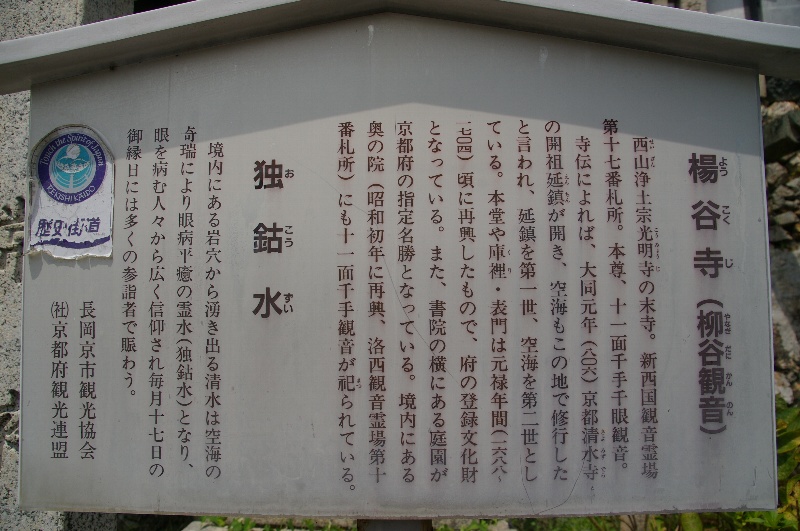 楊谷寺(柳谷観音)
よう こく じ やなぎ だに かん のん
西山浄土宗光明寺の末寺。新西国観音霊場
第十七番札所。本尊、十一面千手千眼観音。
寺伝によれば、大同元年(八〇六)京都清水寺
の開祖延鎮が開き、空海もこの地で修行した
と言われ、延鎮を第一世、空海を第二世とし
ている。本堂や庫裡・表門は元禄年間(一六八八~
一七〇四)頃に再興したもので、府の登録文化財
となっている。また、書院の横にある庭園が
京都府の指定名勝となっている。境内にある
奥の院(昭和初年に再興、洛西観音霊場第十
番札所)にも十一面千手観音が祀られている。
独鈷水
おこうずい
境内にある岩穴から湧き出る清水は空海の
奇瑞により眼病平癒の霊水(独鈷水)となり、
眼を病む人々から広く信仰され毎月十七日の
御縁日には多くの参詣者で賑わう。
長岡京市観光協会
(社)京都府観光連盟
Touch the Spirit of Japan
REKISHI KAIDO
歴史街道